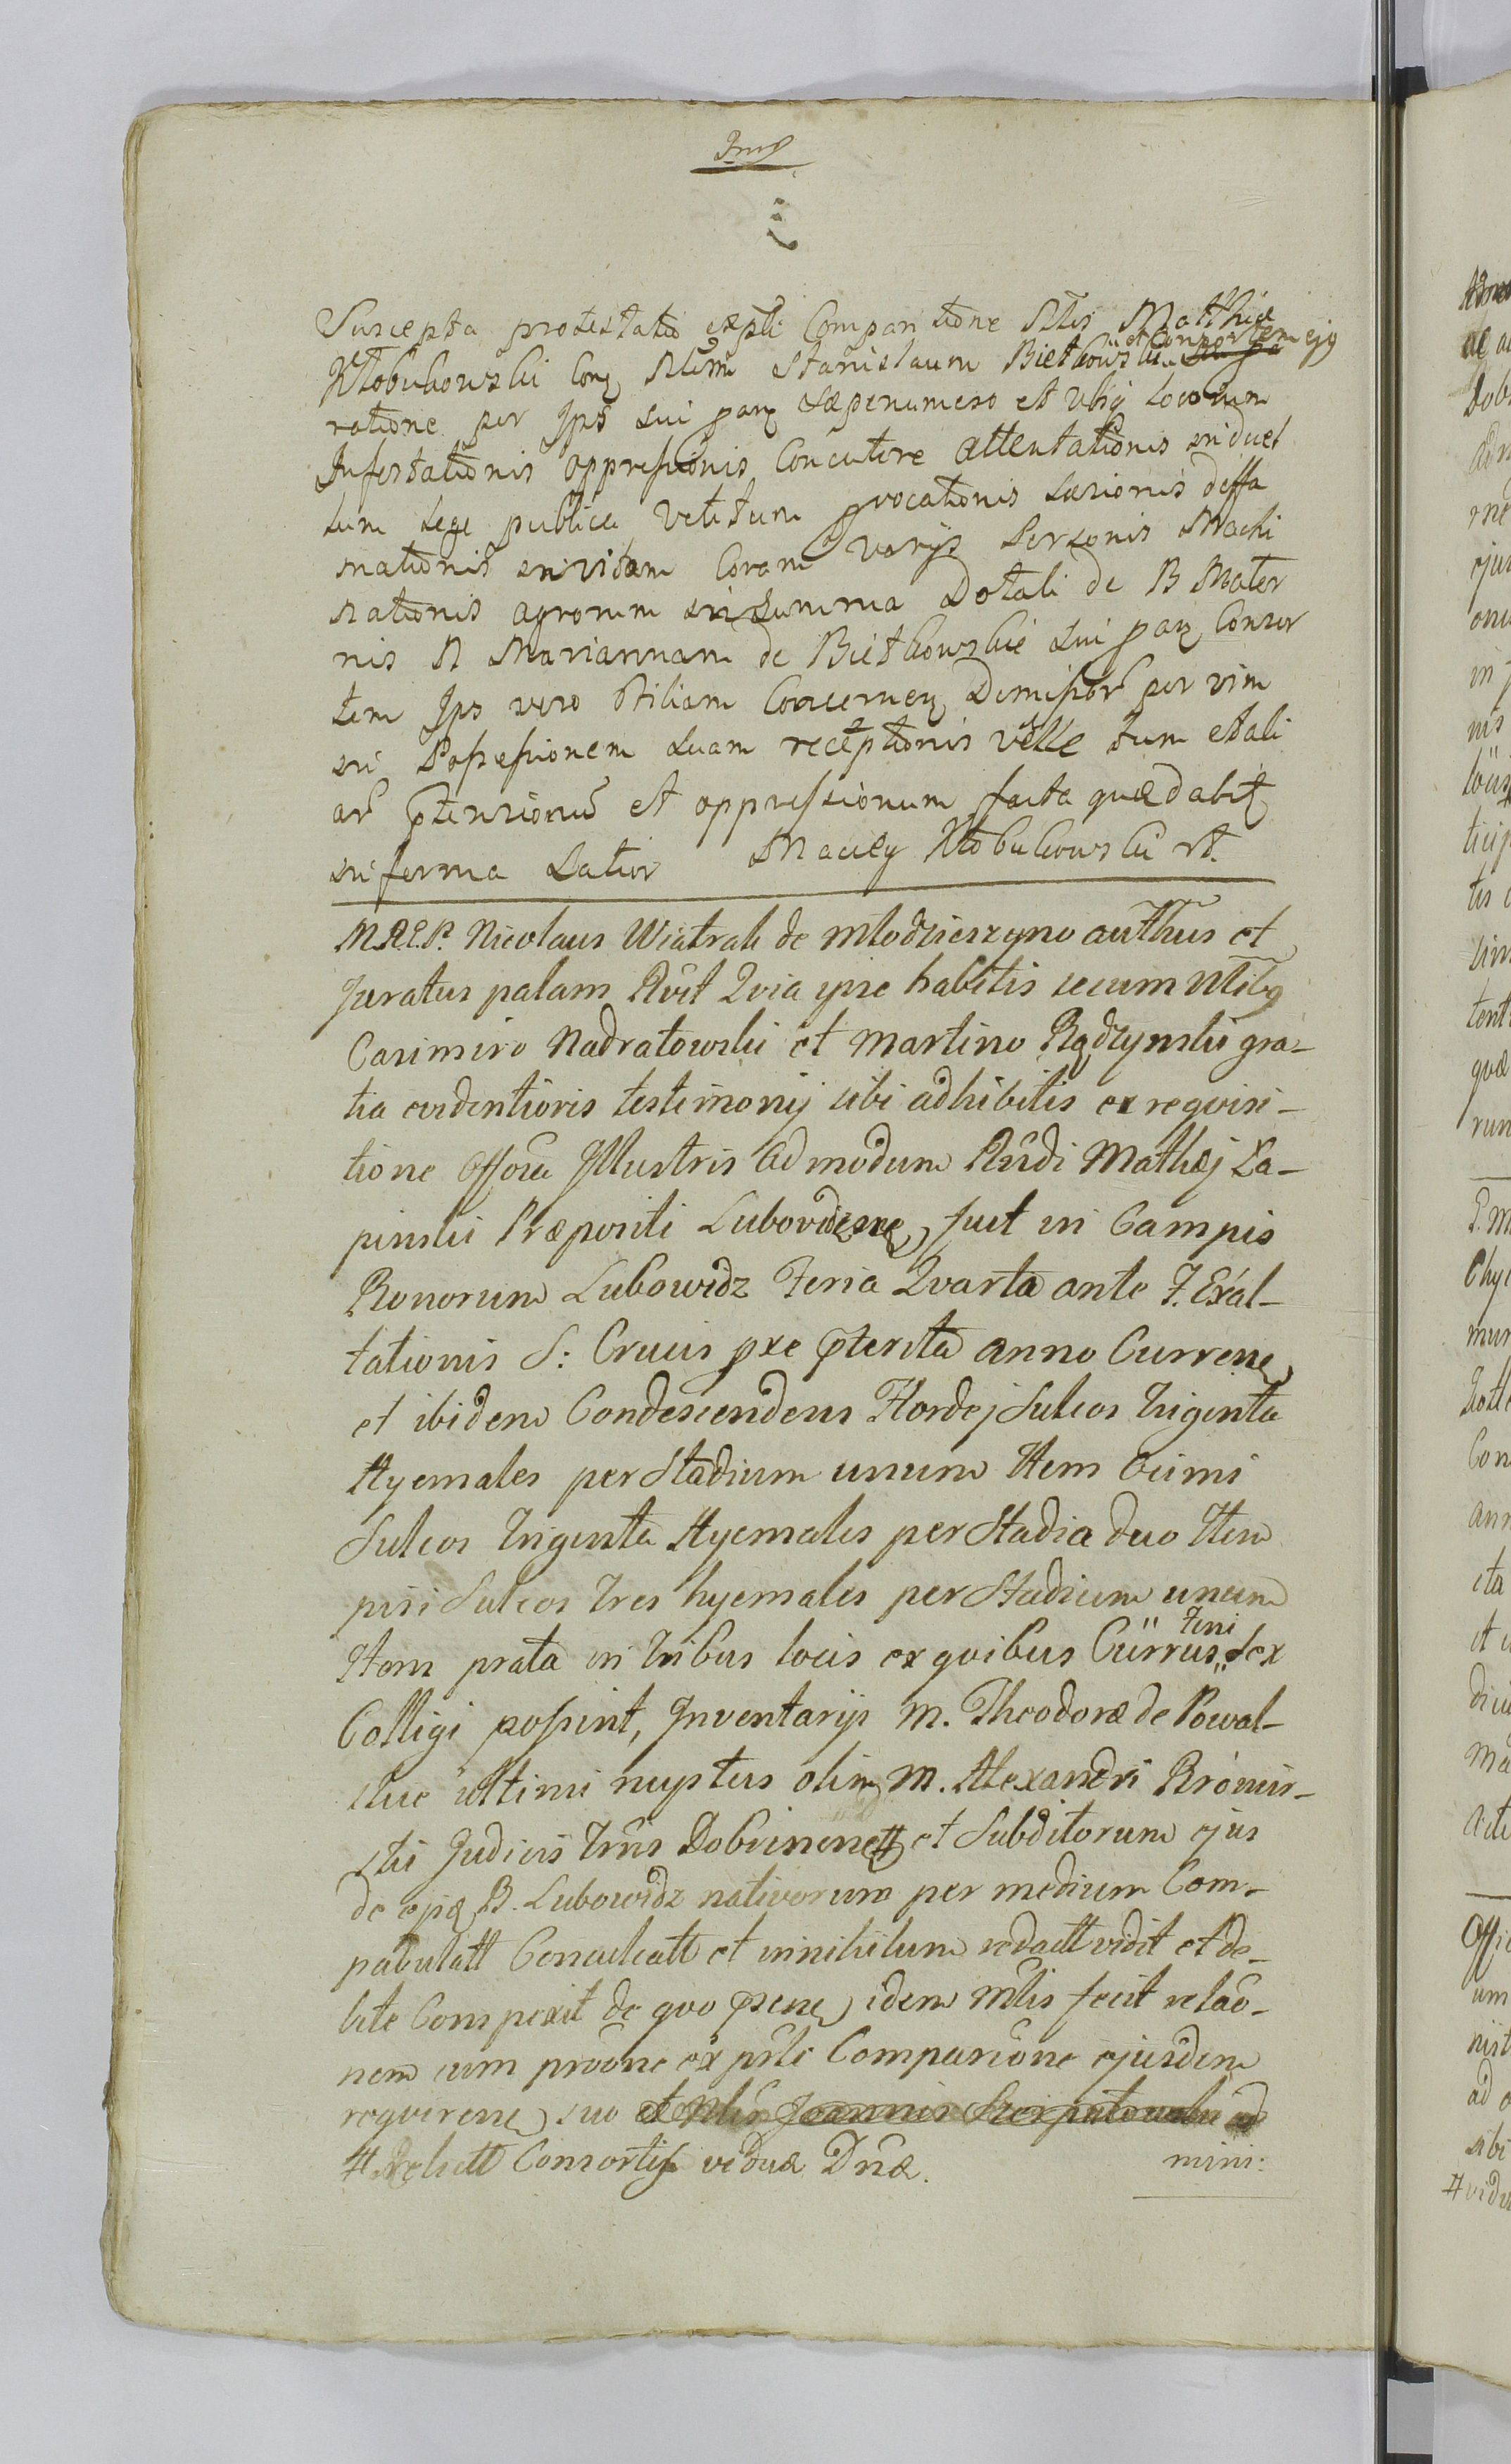 Suscepta protestatio exptti Comparitione Nlis Mathiæ
Kłobukowski Conq Nlem Stanislaum Bietkowski et Consortem ejq
ratione per Ips sui parq Sæpenumero et Vbiq Locorum
Infestationis oppressionis Concutere attentationis in duel
lum Lege publica Vetitum pvocationis Læsionis deffa
mationis in vidam Coram varijs Personis Machi
nationis agrorum in Summa Dotali de B Mater
nis N Mariannam de Bietkowskie sui parq Consor
tem Ips vero Filiam Concernenq Demissor per vim
in Possessionem suam receptionis velle tum et ali
ar ptensionu et oppressionum facta quæ dabitq
in forma Latior Maciey Kłobukowski rt.
M.R.T.P. Nicolaus Wiatrak de Młodzieszyno authus et
Juratus palam Rvit Quia ipse habitis secum Nlibq
Casimiro Nadratowski et Martino Rądzynski gra-
tia evidentioris testimonij sibi adhibitis ex requisi-
tione Offosa Illustris admodum Rndi Mathæj La-
pinski Præpositi Lubovidzenq, fuit in Campis
Bonorum Lubowidz Feria Quarta ante F. Exal-
tationis S: Crucis pxe pterita anno Currenq
et ibidem Condescendens Hordej Sulcos Triginta
Hyemales per Stadium unum Item Ocimi
Sulcos Triginta Hyemales per Stadia duo Item
pisi Sulcos tres hyemales per Stadium unum
Item prata in Tribus locis ex quibus Currus Feni Sex
Colligi possint, Inventarijs M. Theodoræ de Kowal-
skie ultimi nuptus olim M. Alexandri Bromir-
ski Judicis Trris Dobrinenq # et Subditorum ejus
de ejsq B. Lubowidz nativorum per medium Com-
pabulatt Conculcatt et in nihilum redactt vidit et de-
bite Conspexit de quo psenq idem Mlis fecit relao-
nem cum proone ex prti Comparione ejusdem
requirenq suo
# Relictt Consortisq viduæ Dnæ. mini: